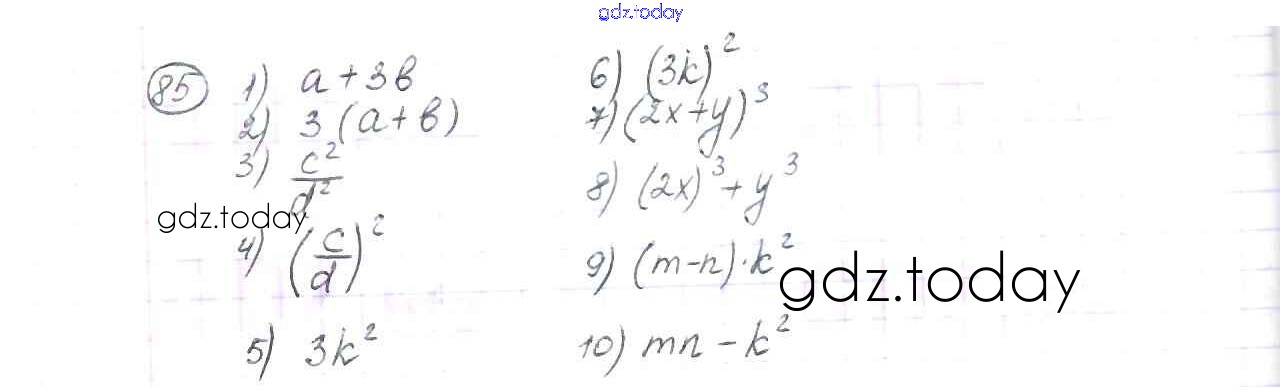 gdz.today
85 1) a + 3b
2) 3 (a + b)
3) c²/d²
gdz.today
4) (c/d)²
5) 3k²
6) (3k)²
7) (2x+y)³
8) (2x)³ + y³
9) (m-n)·k²
gdz.today
10) mn - k²